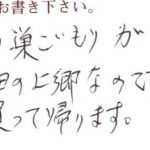 お書き下さい。
巣ごもりが
田の上郷なので
買って帰ります。